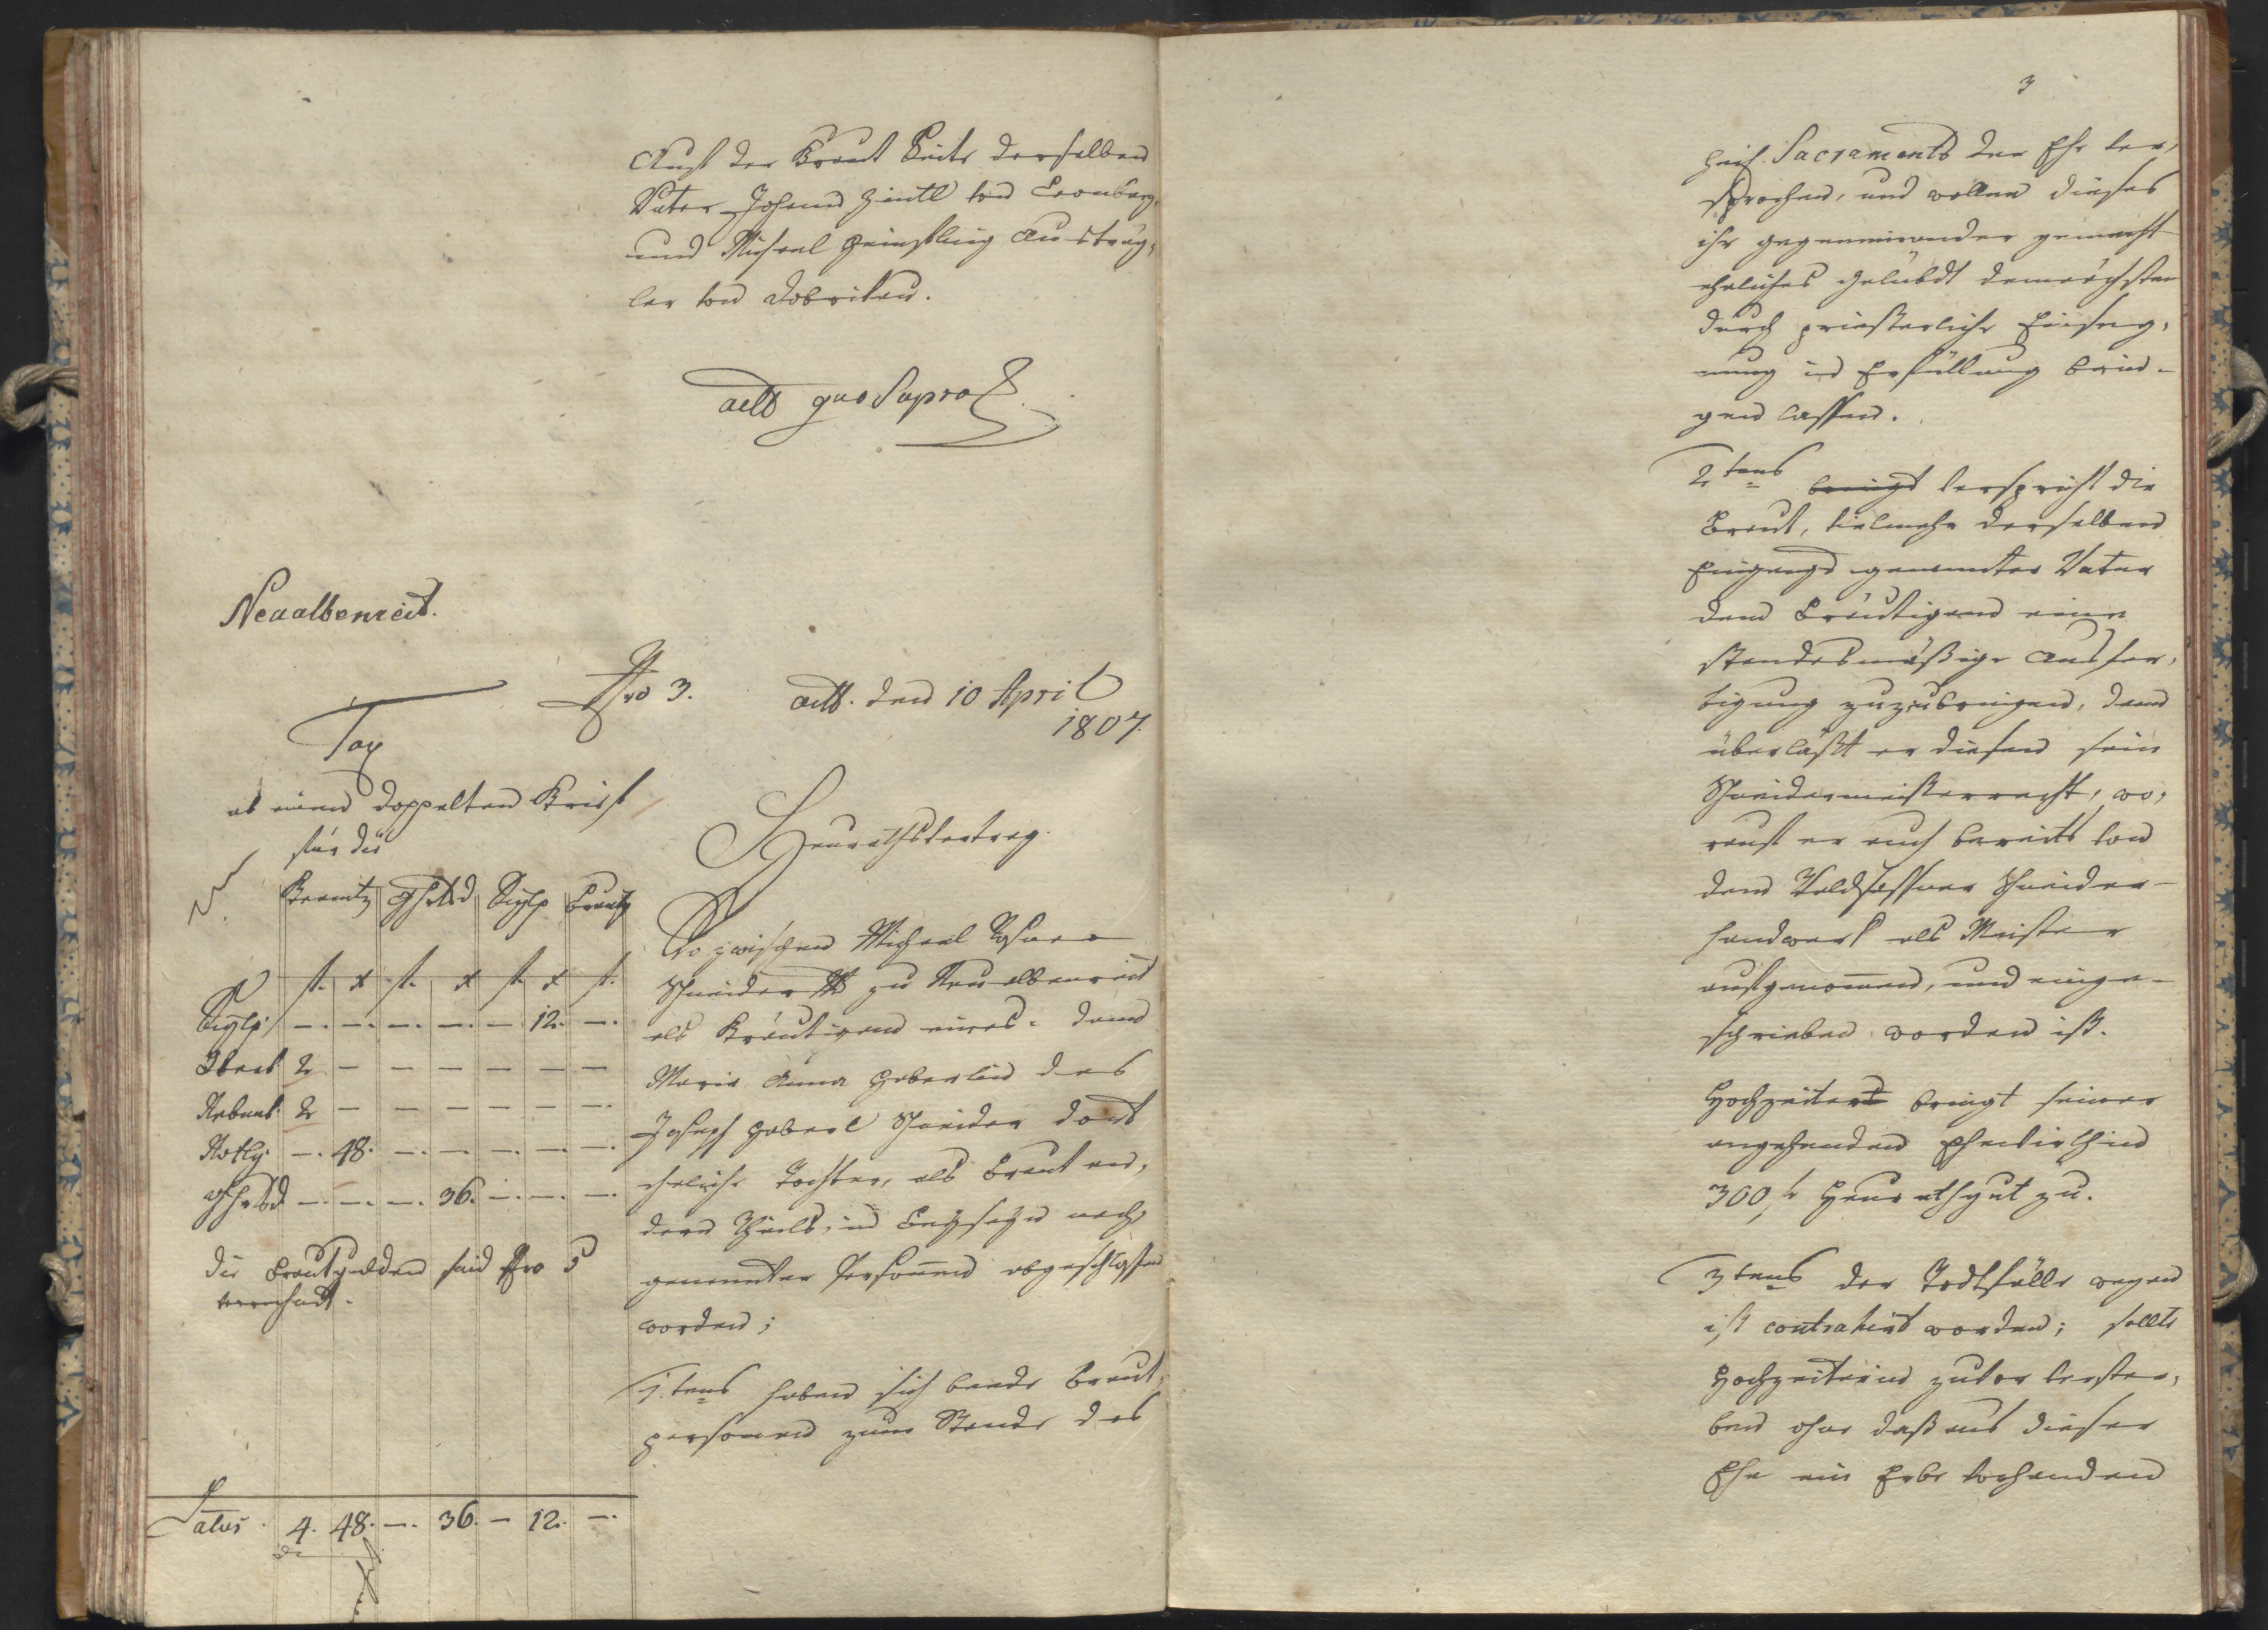 Auf der Braut Seite derselben
Vater Johann Zintl von Leonberg,
und Michael Heinstling Austräg-
ler von Dobrikau.
actt quo Supra
Neualbenreit.
Nro 3. actt. den 10 April
1807.
Tax
ab einen doppelten Brief
für die
Beamtg Ghrtsd Siglg Brautg
fl. x fl. x fl. x fl.
Siglg. —. —. —. —. — 12. —.
2 — — — — — —
2 — — — — — —.
—. 48. —. —. —. —. —.
Ghrtsd —. —. —. 36. —. —. —.
die Brautgulden sind Nro 5
verrechnet.
Latus. 4. 48. —. 36. — 12. —.
Heurathsvertrag.
So zwischen Michael
Schneider zu Neualbenreit
als Bräutigam eines- dann
Maria Anna Haberlin des
Joseph Haberl Schneider dort
eheliche Tochter, als Braut an-
dern Theils, in Beyseyn nach-
genannter Personen abgeschlossen
worden;
1.tens haben sich beede Braut-
personen zum Stande des
3
heil. Sacraments der Ehe ver-
sprochen, und wollen dieses
ihr gegeneinander gemacht
eheliches Gelübdt demnächsten
durch priesterliche Einseg-
nung in Erfüllung brin-
gen lassen.
2tens bringt verspricht die
Braut, vielmehr derselben
Eingangs genannter Vater
dem Bräutigam eine
standesmäßige Ausfer-
tigung zuzubringen, dann
überläßt er diesen sein
Schneidermeisterrecht, wo-
rauf er auch bereits von
dem Waldsassner Schneider-
handwerk als Meister
aufgenommen, und einge-
schrieben worden ist.
Hochzeiter bringt seiner
angehenden Ehewirthin
300 fl Heurathgut zu.
3tens der Todtfälle wegen
ist contrahirt worden; sollte
Hochzeiterin zuvor verster-
ben ohne daß aus dieser
Ehe ein Erbe vorhanden